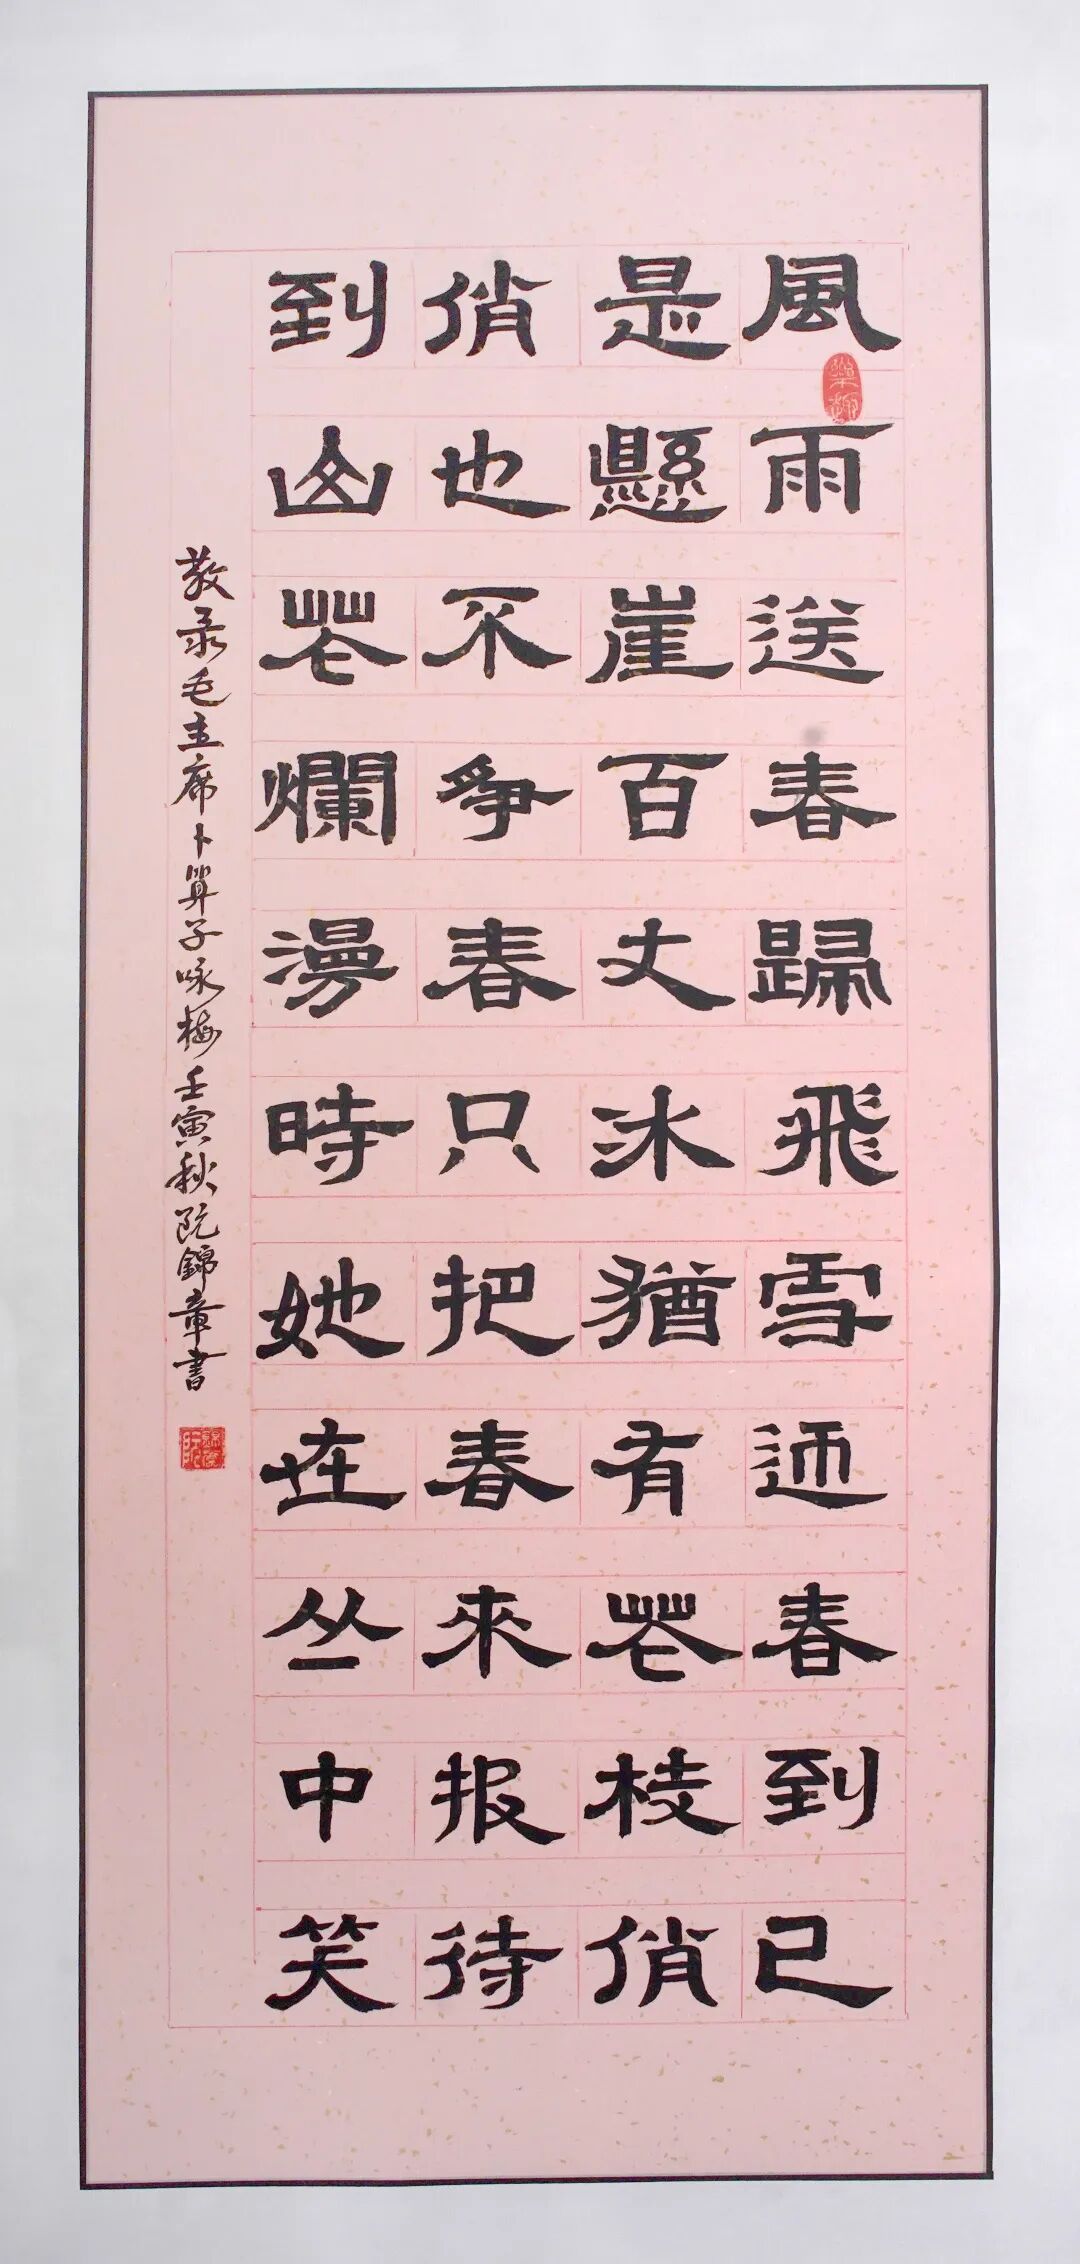 風雨送春歸飛雪迎春到已
是懸崖百丈冰猶有花枝俏
俏也不爭春只把春來报待
到山花爛漫時她在丛中笑
敬录毛主席卜算子咏梅壬寅秋阮錦章書